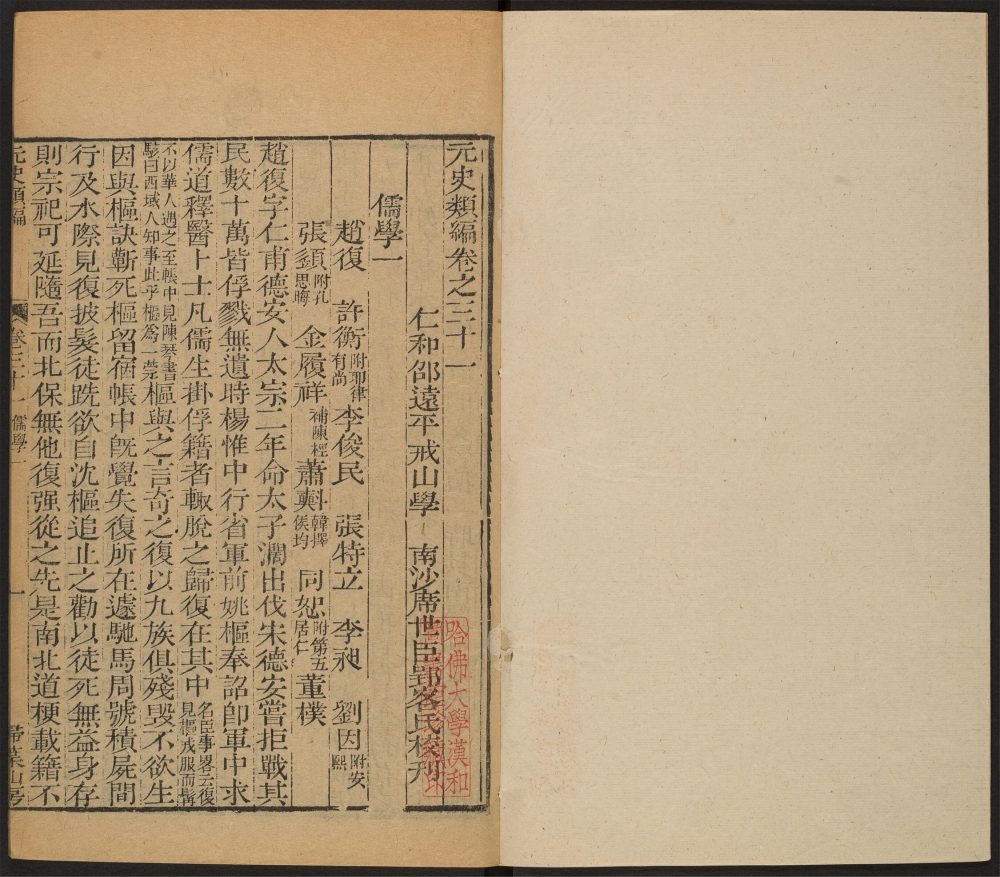 元史類編卷之三十一
仁和邵遠平戒山學 南沙席世臣郢客氏校刊
哈佛大學漢和
儒學一
趙復 許衡附耶律有尚 李俊民 張特立 李昶 劉因附安熙
張𩓥附孔思晦 金履祥補陳櫟 蕭𣂏韓擇侯均 同恕附第五居仁 董樸
趙復字仁甫德安人太宗二年命太子濶出伐宋德安嘗拒戰其
民數十萬皆俘戮無遺時楊惟中行省軍前姚樞奉詔卽軍中求
儒道釋醫卜士凡儒生掛俘籍者輙脫之歸復在其中名臣事畧云復見樞戎服而髯
不以華人遇之至帳中見陳琴書駭曰西域人知事此乎樞爲一莞樞與之言奇之復以九族俱殘毀不欲生
因與樞訣蘄死樞留宿帳中旣覺失復所在遽馳馬周號積屍間
行及水際見復披髮徒跣欲自沈樞追止之勸以徒死無益身存
則宗祀可延隨吾而北保無他復强從之先是南北道梗載籍不
元史類編 卷三十一 儒學一 一 掃葉山房